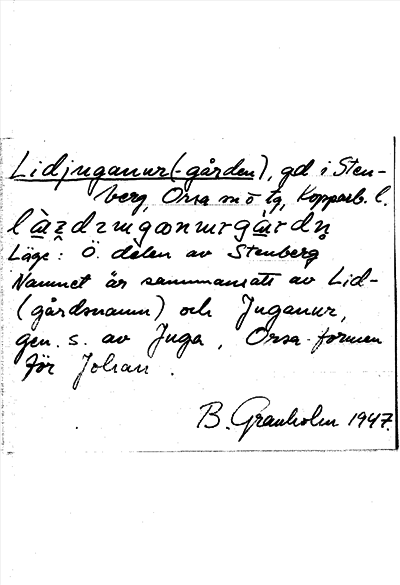 Lidjuganur(-gården), gd i Sten-
berg, Orsa sn o tg, Kopparb. l.
Läge: Ö. delen av Stenberg
Namnet är sammansatt av Lid-
(gårdsnamn) och Juganur,
gen. s. av Juga, Orsa-formen
för Johan.
B. Granholm 1947.